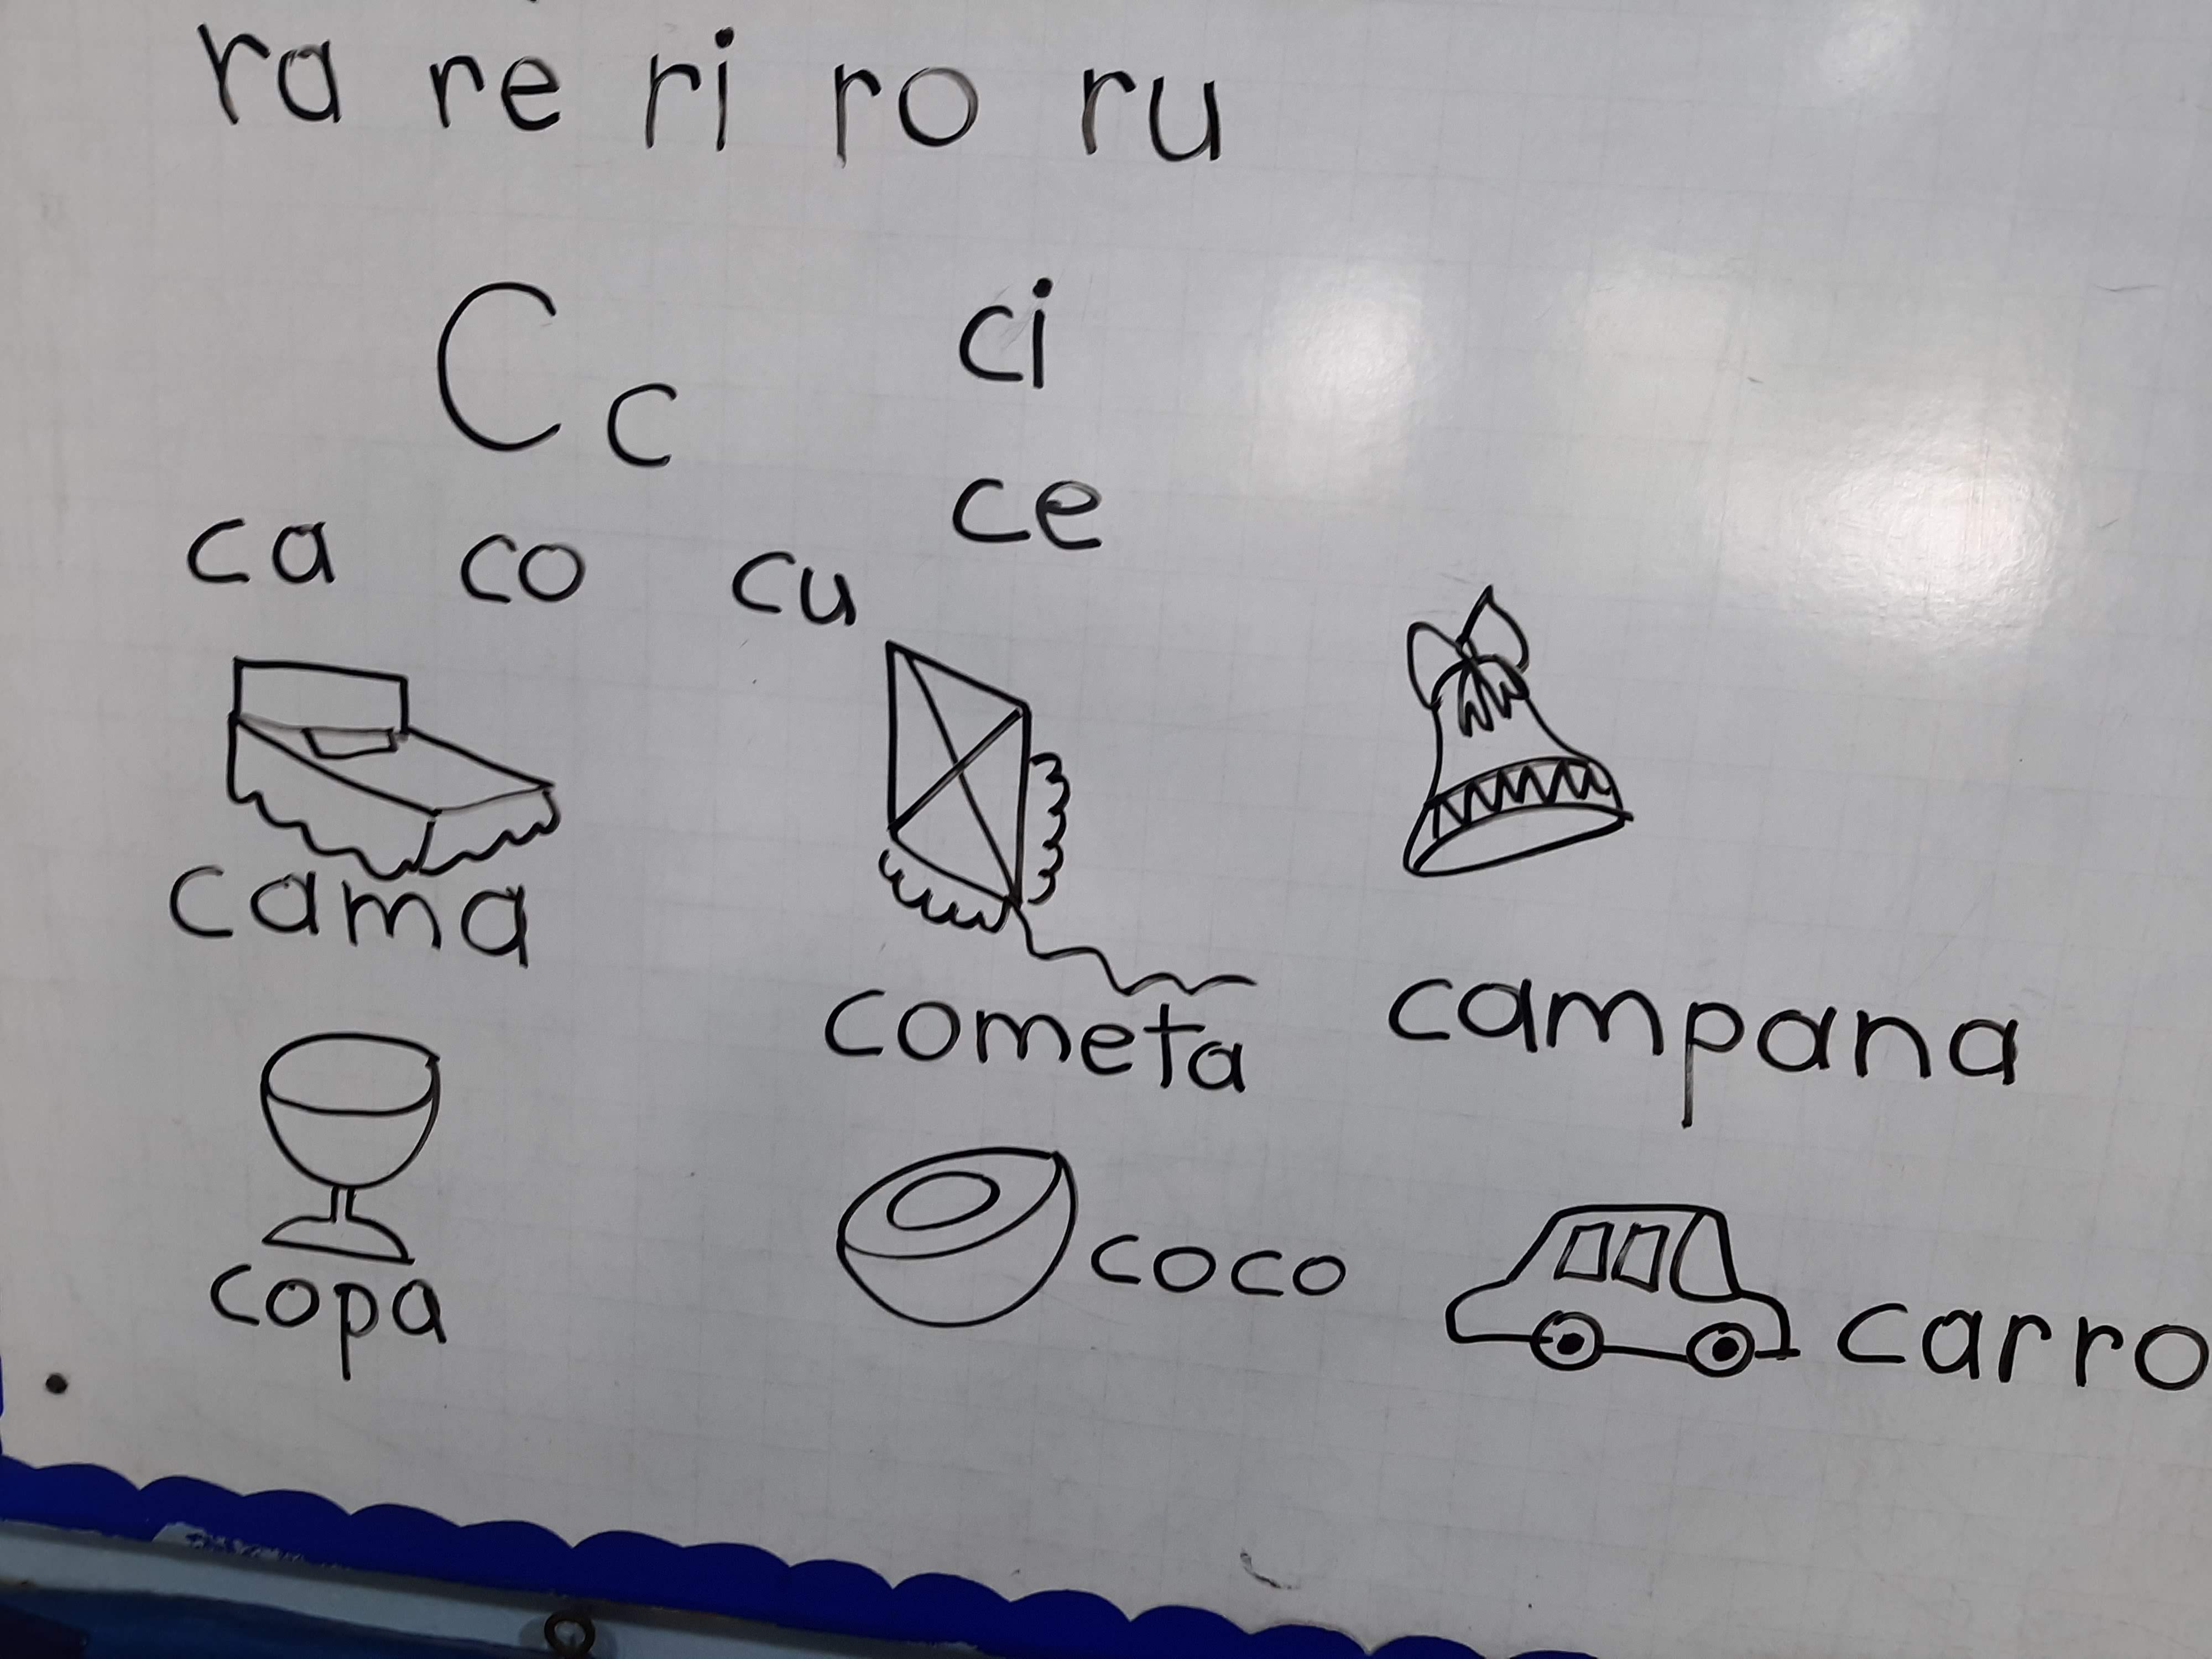 ra re ri ro ru
C c
ci
ce
ca co cu
cama
cometa
campana
copa
coco
carro